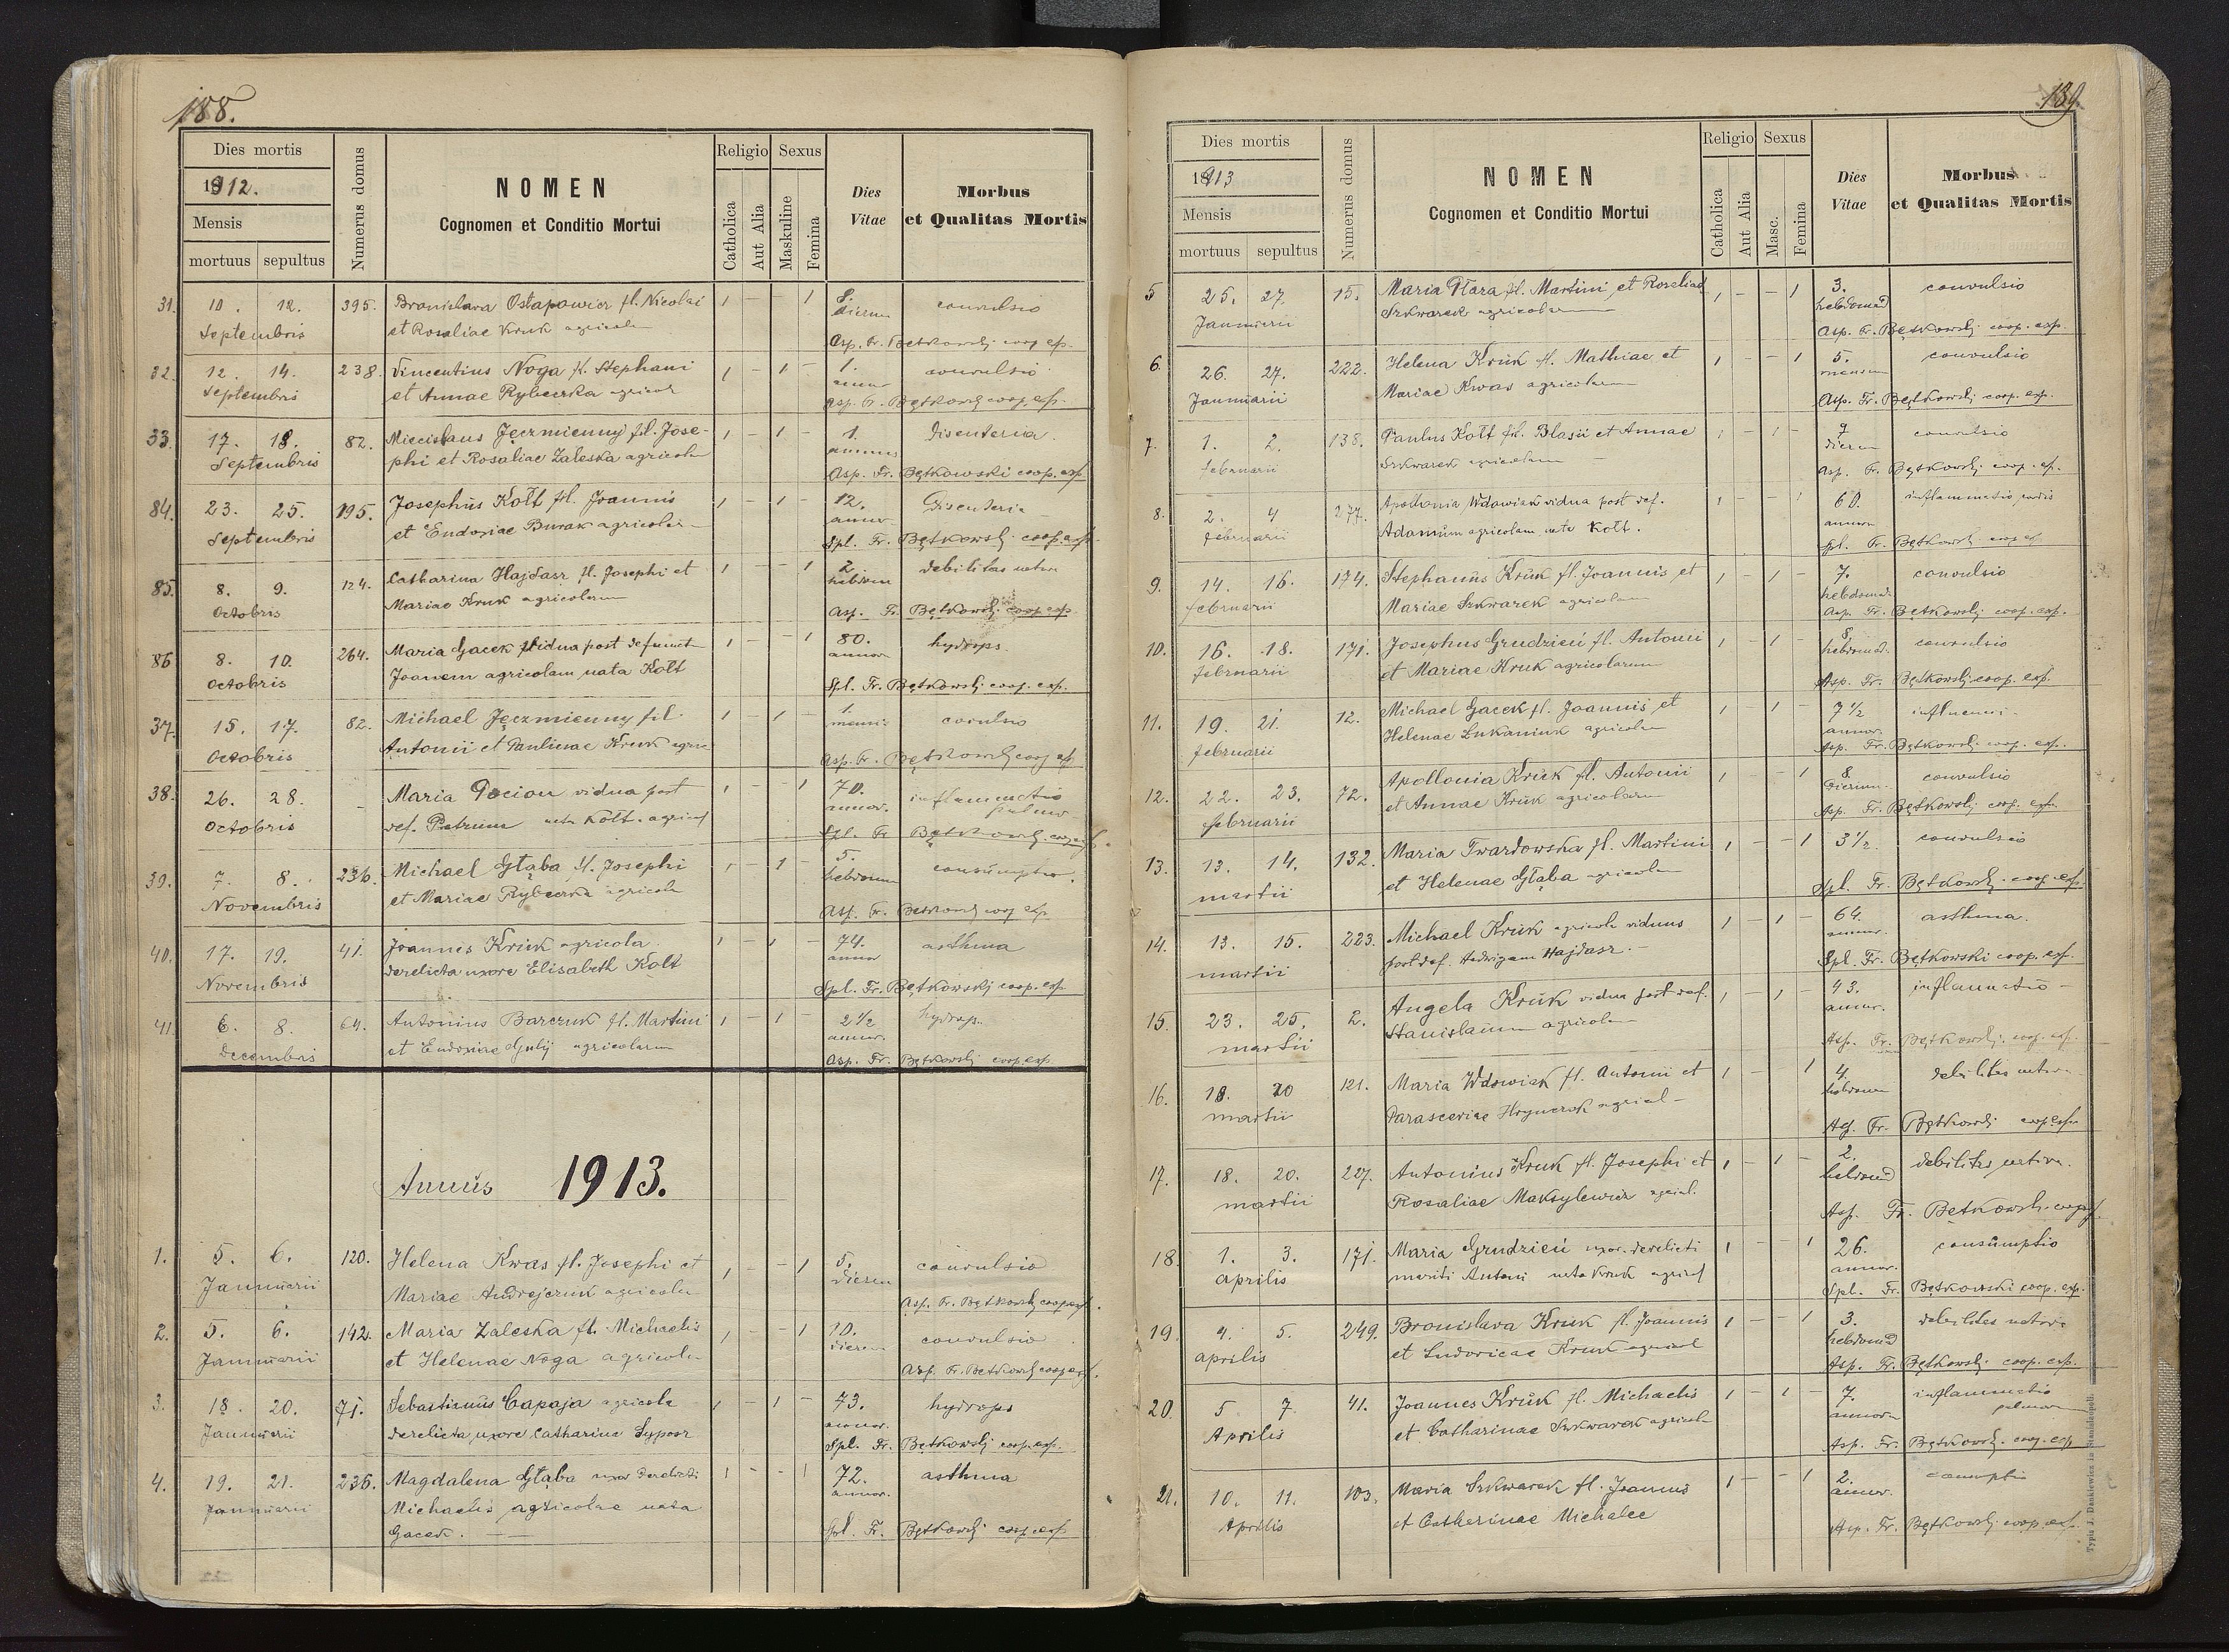 188.
Dies mortis
1912.
Mensis
mortuus sepultus
Numerus domus
NOMEN
Cognomen et Conditio Mortui
Religio
Catholica
Aut Alia
Sexus
Maskuline
Femina
Dies
Vitae
Morbus
et Qualitas Mortis
31. 10. 12. 395. Bronislava Ostapowicz fl. Nicolai 1 - - 1 8. convulsio
Septembris et Rosaliae Kruk dierum
Asp. Fr. Bętkowski coop. exp.
32. 12. 14. 238. Vincentius Noga fl. Stephani 1 - 1 - 1. convulsio
Septembris et Annae Rybeczka
Asp. Fr. Bętkowski coop. exp.
33. 17. 18. 82. Miecislaus Jęczmienny fil. Jose- 1 - 1 - 1. Disenteria
Septembris phi et Rosaliae Zaleska agricolar annus
Asp. Fr. Bętkowski coop. exp.
84. 23. 25. 195. Josephus Kołt fil. Joannis 1 - 1 - 12. Disenteria
Septembris et Eudoxiae Burak agricolar annor
Spl. Fr. Bętkowski coop. exp.
85. 8. 9. 124. Catharina Hajdasz fl. Josephi et 1 - - 1 2 debilitas natur
Octobris Mariae Kruk agricolarum hebdom
Asp. Fr. Bętkowski coop. exp.
86 8. 10. 264. Maria Gacek vidua post defunct 1 - - 1 80. hydrops
Octobris Joanem agricolam nata Kołt annor
Spl. Fr. Bętkowski coop. exp.
37. 15. 17. 82. Michael Jęczmienny fil. 1 - 1 - 1.
Octobris Antonii et Paulinae Kruk
Asp. Fr. Bętkowski coop exp
38. 26. 28. Maria vidua post 1 - - 1 70. inflammatio
Octobris def. Petrum nata Kołt. annor. pulmo
Spl. Fr Bętkowski
39. 7. 8. 236. Michael Głąba fl. Josephi 1 - 1 5. consumptio
Novembris et Mariae Rybeczka agricola hebdom
Asp. Fr. Bętkowski coop exp
40. 17. 19. 41. Joannes Kruk agricola 1 - 1 - 74. asthma
Novembris derelicta uxore Elisabeth Kołt annor
Spl. Fr. Bętkowski coop. exp
41 6. 8. 64. Antonius Barczuk fl. Martini 1 - 1 - 2½ hydrop.
Decembris et Eudoxiae agricolarum annor.
Asp. Fr. Bętkowski coop. exp.
Annus 1913.
1. 5. 6. 120. Helena Kwas fl. Josephi et 1 - - 1 5. convulsio
Januarii Mariae Andrejczuk agricolar dierum
Asp. Fr. Bętkowski coop exp.
2. 5. 6. 142. Maria Zaleska fl. Michaelis 1 - - 1 10. convulsio
Januarii et Helenae Noga agricolar dierum
Asp. Fr. Bętkowski coop exp.
3. 18. 20. 71. Sebastianus Capaja agricola 1 - 1 - 73. hydrops
Januarii derelicta uxore Catharina annor.
Spl. Fr. Bętkowski coop. exp.
4. 19. 21. 236. Magdalena Głąba uxor derelicti 1 - - 1 72. asthma
Januarii Michaelis agricolae nata annor.
Gacek. Spl. Fr. Bętkowski coop. exp
139.
Dies mortis
1913
Mensis
mortuus sepultus
Numerus domus
NOMEN
Cognomen et Conditio Mortui
Religio
Catholica
Aut Alia
Sexus
Masc.
Femina
Dies
Vitae
Morbus
et Qualitas Mortis
5 25. 27 15. Maria fl. Martini et Rosaliae 1 - - 1 3. convulsio
Januarii Szkwarek agricolarum hebdomad
Asp. Fr. Bętkowski coop. exp.
6. 26. 27. 222. Helena Kruk fl. Mathiae et 1 - - 1 5. convulsio
Januarii Mariae Kwas agricolarum mensium
Asp. Fr. Bętkowski coop. exp.
7. 1. 2. 138. Paulus Kołt fil. Blasii et Annae 1 - 1 - 9 convulsio
februarii Szkwarek agricolarum dierum
Asp. Fr. Bętkowski coop. exp.
8. 2. 4 277. Apollonia Wdowiak vidua post def. 1 - - 1 60. inflammatio
februarii Adamum agricolam nata Kołt. annor
Spl. Fr. Bętkowski coop exp
9. 14. 16. 174. Stephanus Kruk fl. Joannis et 1 - 1 - 7. convulsio
februarii Mariae Szkwarek agricolarum hebdomad
Asp. Fr. Bętkowski coop. exp.
10. 16. 18. 171. Josephus Grudzień fl. Antonii 1 - 1 - 8. convulsio
februarii et Mariae Kruk agricolarum hebdomad.
Asp. Fr. Bętkowski coop. exp.
11. 19. 21. 12. Michael Gacek fl. Joannis et 1 - 1 - 7½
februarii Helenae Łukaniuk agricolar annor.
Asp. Fr. Bętkowski coop. exp.
12. 22. 23. 72. Apollonia Kruk fl. Antonii 1 - - 1 8. convulsio
februarii et Annae Kruk agricolarum dierum.
Asp. Fr. Bętkowski coop. exp.
13. 13. 14. 132. Maria Twardowska fl. Martini 1 - - 1 3½. convulsio
martii et Helenae Głąba agricolar
Spl. Fr. Bętkowski coop. exp.
14. 13. 15. 223. Michael Kruk agricola viduus 1 - 1 - 64. asthma.
martii post def. Hedvigam Hajdasz. annor.
Spl. Fr. Bętkowski coop. exp.
15. 23. 25. 2. Angela Kruk vidua post def. 1 - 1 - 43. inflammatio
martii Stanislaum agricolam annor.
Asp. Fr. Bętkowski coop. exp.
16. 18. 20 121. Maria Wdowiak fl. Antonii et 1 - 1 4. debilitas natur
martii Parasceviae agricol hebdom
Asp. Fr. Bętkowski coop exp
17. 18. 20. 227. Antonius Kruk fl. Josephi et 1 - 1 - 2. debilitas nativa.
martii Rosaliae Maksylewicz agricol. hebdomad
Asp. Fr. Bętkowski coop exp.
18. 1. 3. 171. Maria Grudzień uxor derelicti 1 - - 1 26. consumptio
aprilis mariti Antoni nata Kruk annor.
Spl. Fr. Bętkowski coop. exp.
19. 4. 5. 249. Bronislava Kruk fl. Joannis 1 - - 1 3. debilitas
aprilis et Ludovicae Kruk hebdomad
Asp. Fr. Bętkowski coop. exp.
20. 5 7. 41. Joannes Kruk fl. Michaelis 1 - 1 - 7. inflammatio
Aprilis et Catharinae Szkwarek agricola annor
Asp. Fr. Bętkowski coop. exp
21. 10. 11. 103. Maria Szkwarek fl. Joannis 1 - - 1 2.
Aprilis et Catharinae Michalec annor.
Asp. Fr. Bętkowski coop. exp.
Typis J. Dankiewicz in Stanislaopoli.